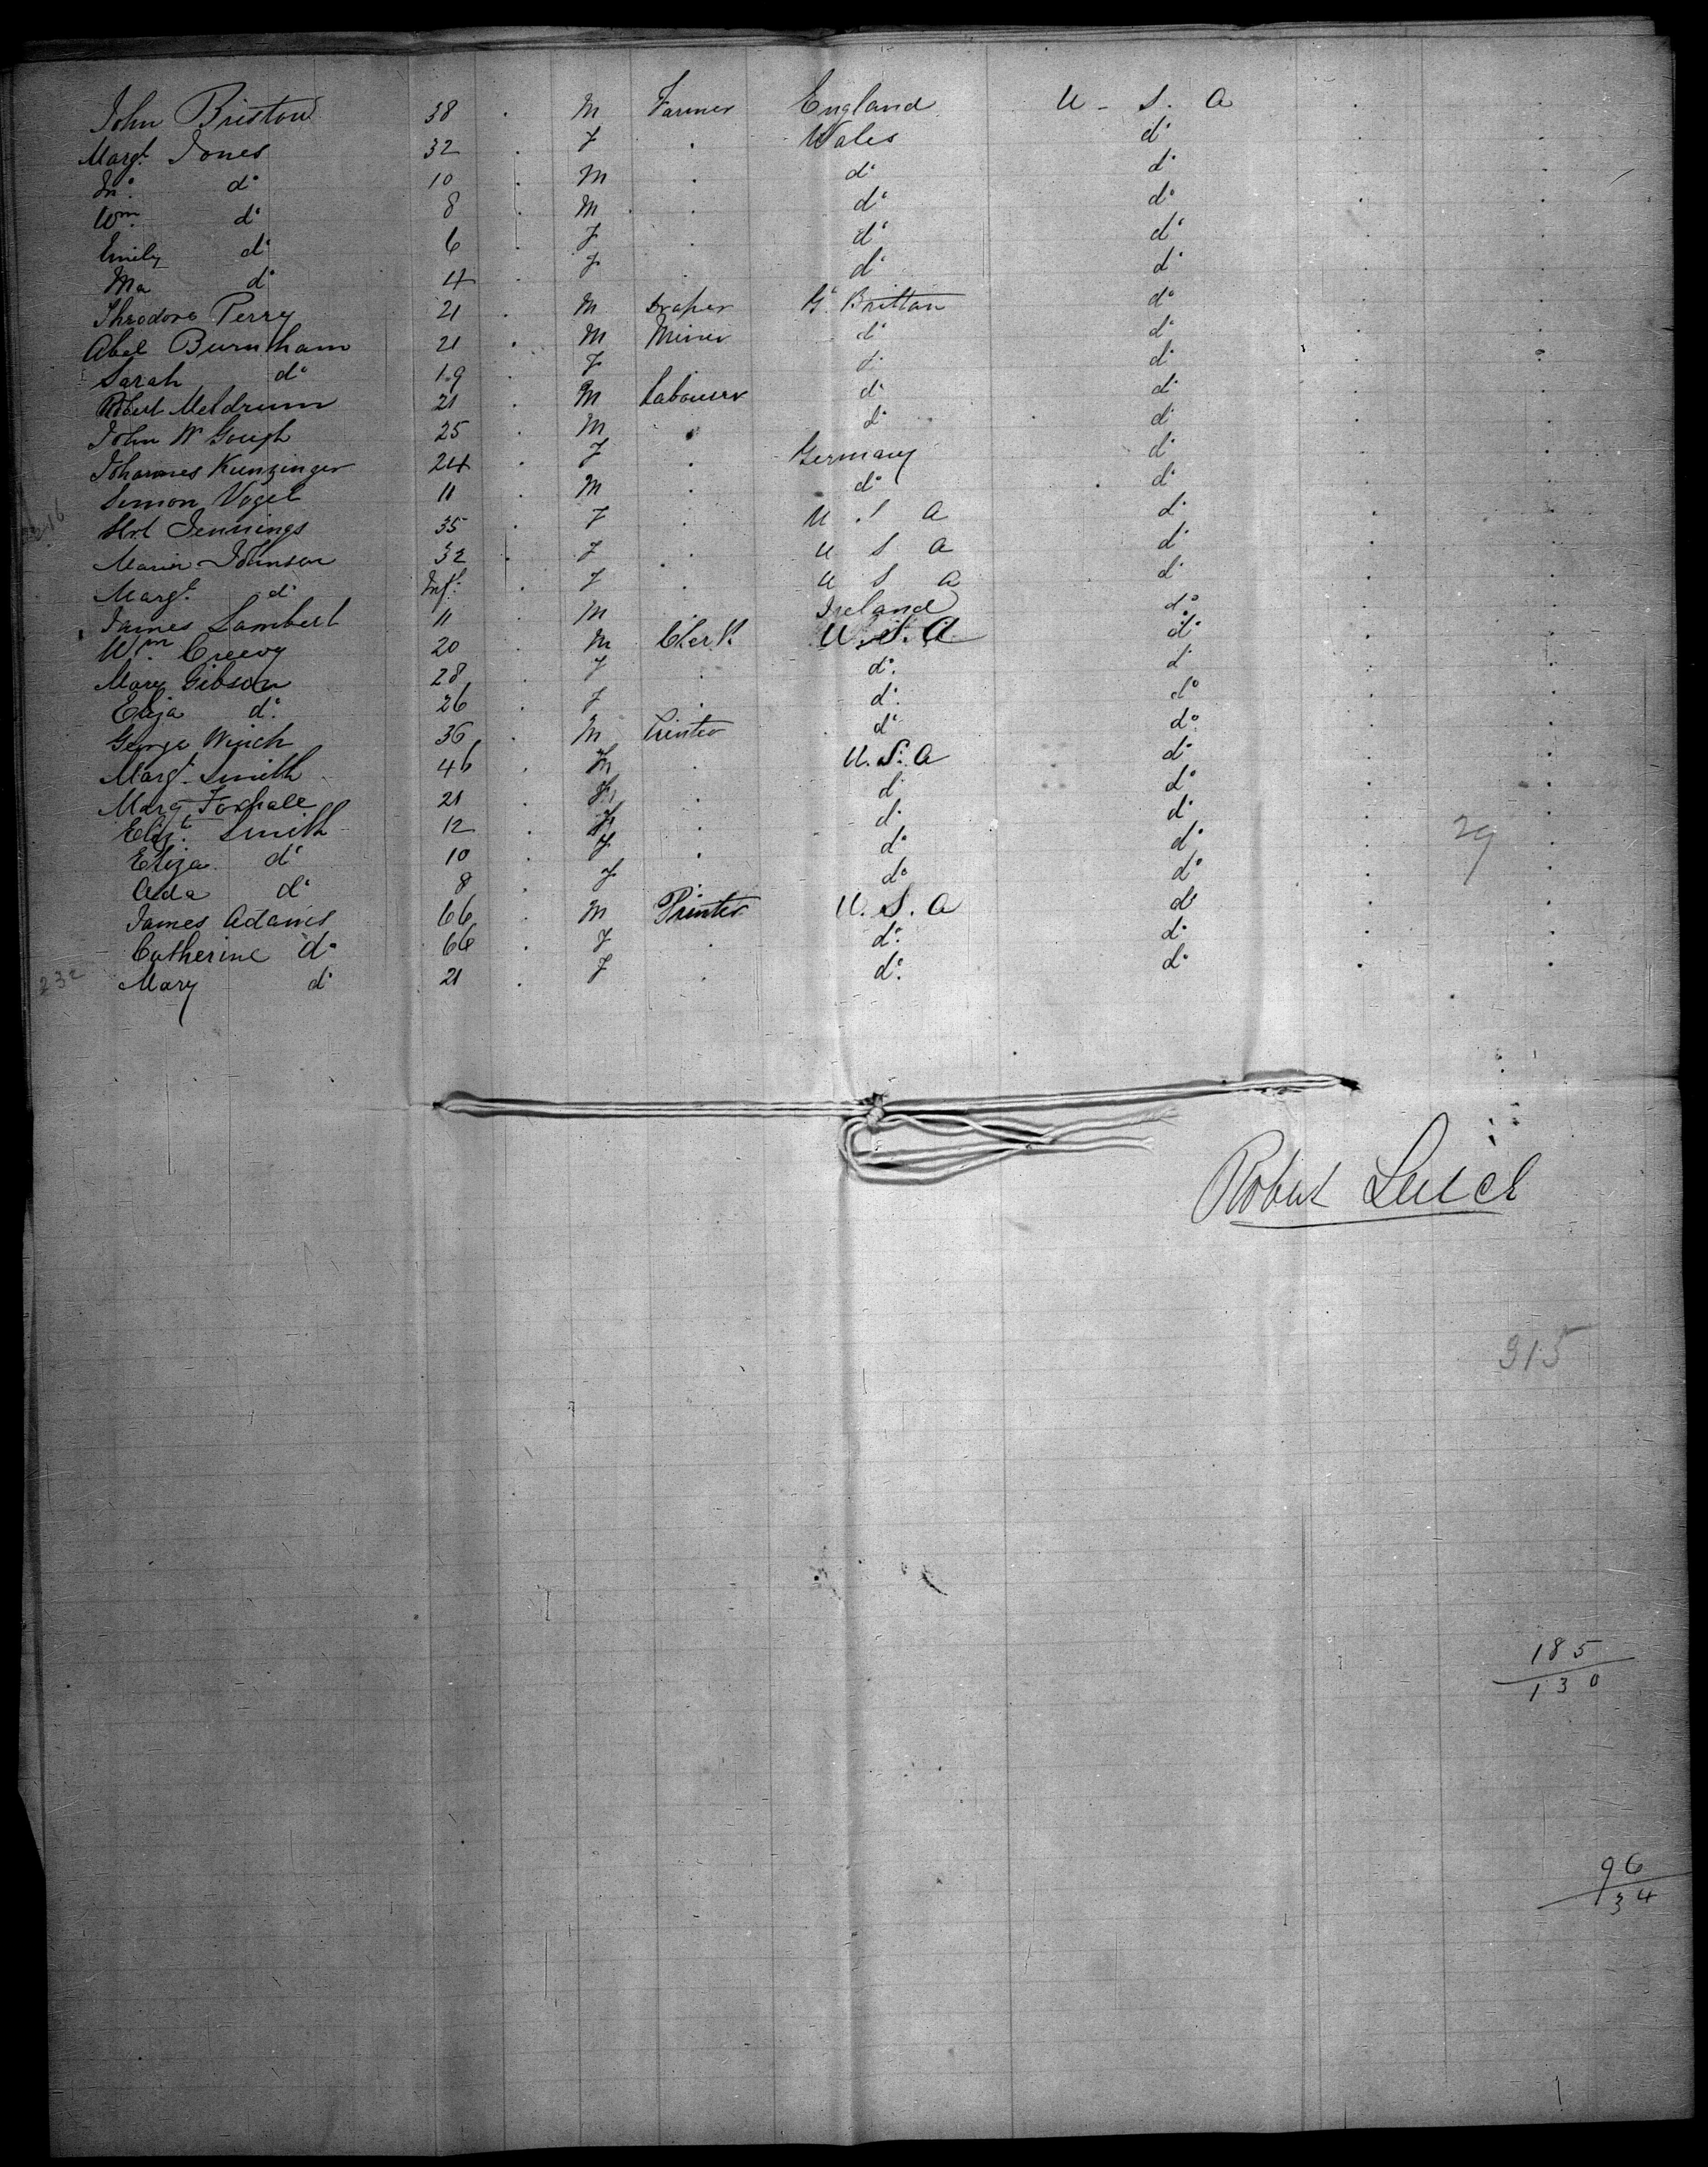 John Bristow 38 . M Farmer England U - S. A
Margt. Jones 32 . F . Wales do
Jno. do 10 . M . do do
Wm. do 8 . M . do do
Emily do 6 . F . do do
Ma do 4 . F . do do
Theodore Perry 21 . M Draper Gt. Brittan do
Abel Burnham 21 . M Miner do do
Sarah do 19 . F do do
Robert Meldrum 21 . M Labourer do do
John W Gough 25 . M . do do
Johannes Kunzinger 24 . F . Germany do
Simon Vogel 11 . M . do do
Jennings 35 . F . U S A do
Johnson 32 . F . U S A do
Margt. do Inft. . F . U S A do
James Lambert 11 . M Ireland do
Wm. Creevy 20 M Clerk U.S.A. do
Mary Gibson 28 . F . do. do
Eliza do. 26 . F . do. do
George Winch 36 . M Printer do do
Margt. Smith 46 . F . U.S.A do
Mary Foxhall 21 . F . do do
Elizth. Smith 12 . F . do do
Eliza do 10 F . do do
29
Ada do 8 . F . do do
James Adams 66 . M Printer U.S.A do
Catherine do 66 . F . do. do
232 Mary do 21 . F . do. do
Robert
315
185
130
96
34